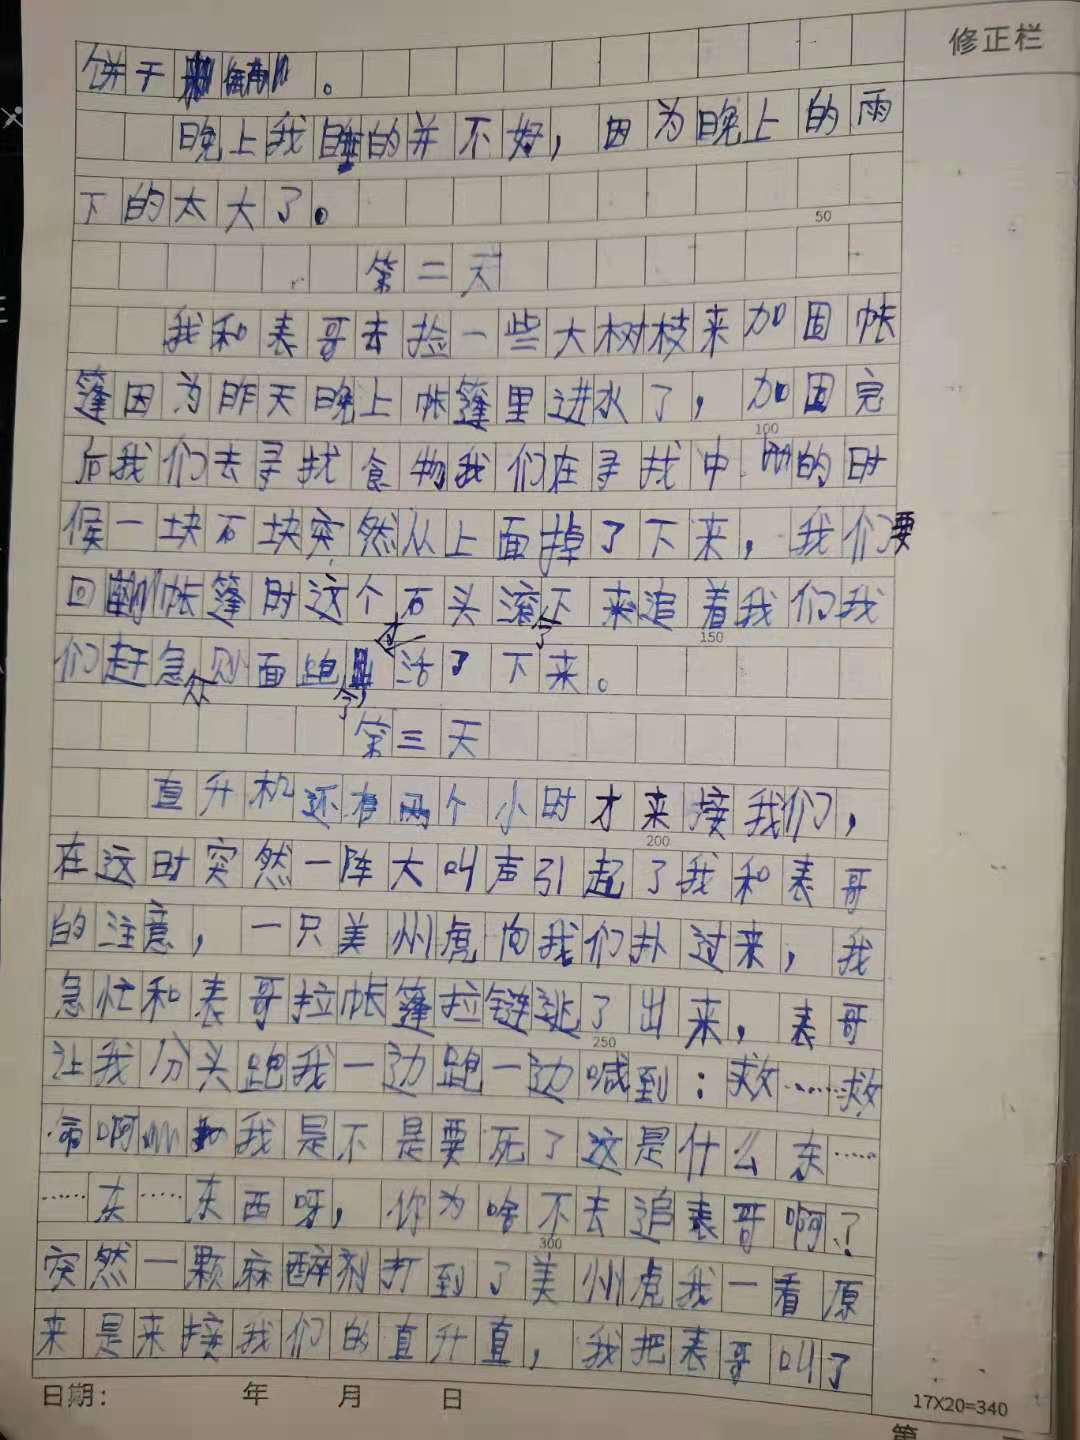 修正栏
饼干。
晚上我睡的并不好，因为晚上的雨
下的太大了。
50
第二天
我和表哥去捡一些大树枝来加固帐
篷因为昨天晚上帐篷里进水了，加固完
100
后我们去寻找食物我们在寻找中的时
候一块石块突然从上面掉了下来，我们要
回帐篷时这个石头滚下来追着我们我
150
们赶急从侧面跑了才活了下来。
第三天
直升机还有两个小时才来接我们，
200
在这时突然一阵大叫声引起了我和表哥
的注意，一只美州虎向我们扑过来，我
急忙和表哥拉帐篷拉链逃了出来，表哥
250
让我分头跑我一边跑一边喊到：救……救
命啊我是不是要死了这是什么东……
……东……东西呀，你为啥不去追表哥啊？
300
突然一颗麻醉剂打到了美州虎我一看原
来是来接我们的直升直，我把表哥叫了
日期： 年 月 日
17X20=340
第